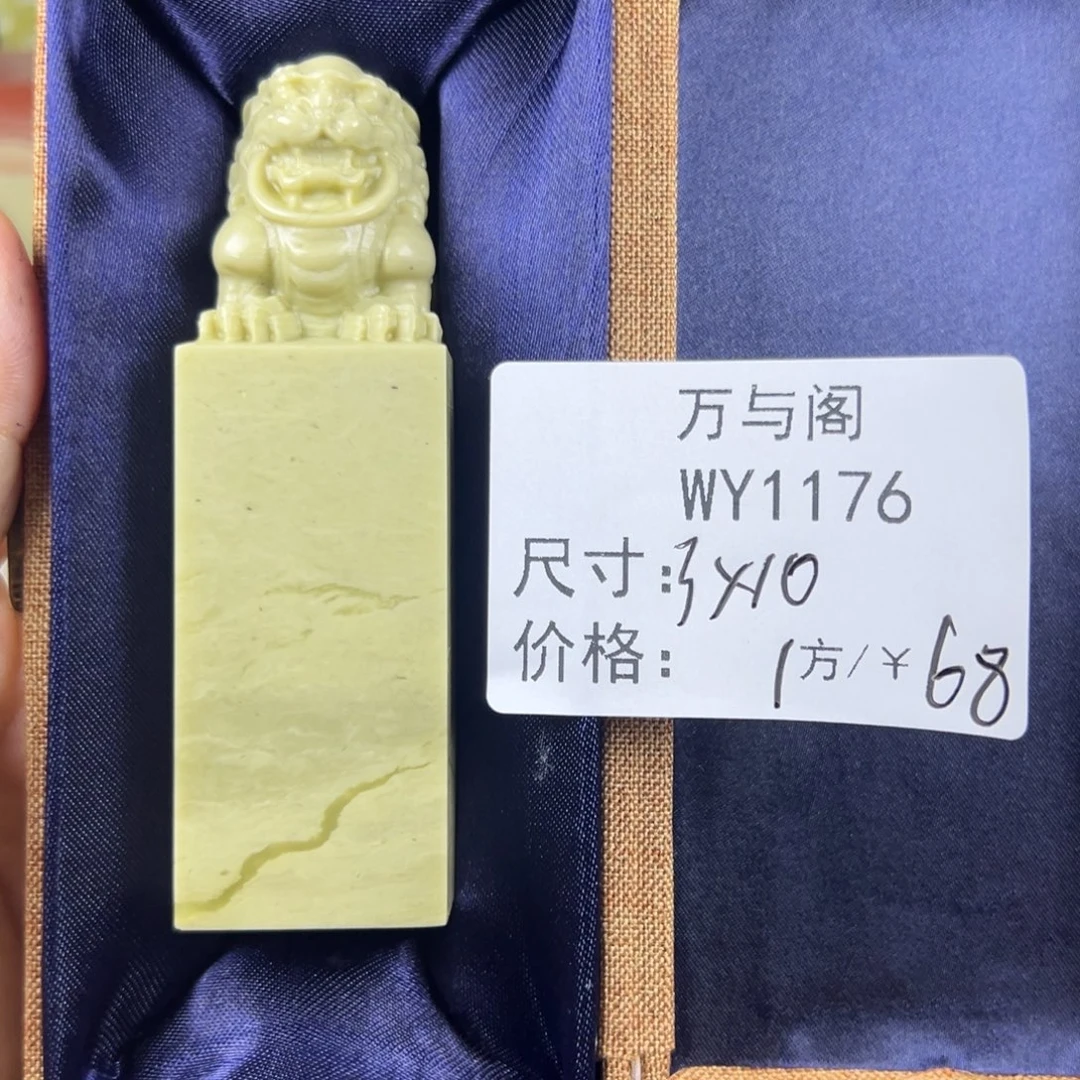 万与阁
WY1176
尺寸:3×10
价格: 1方/¥68